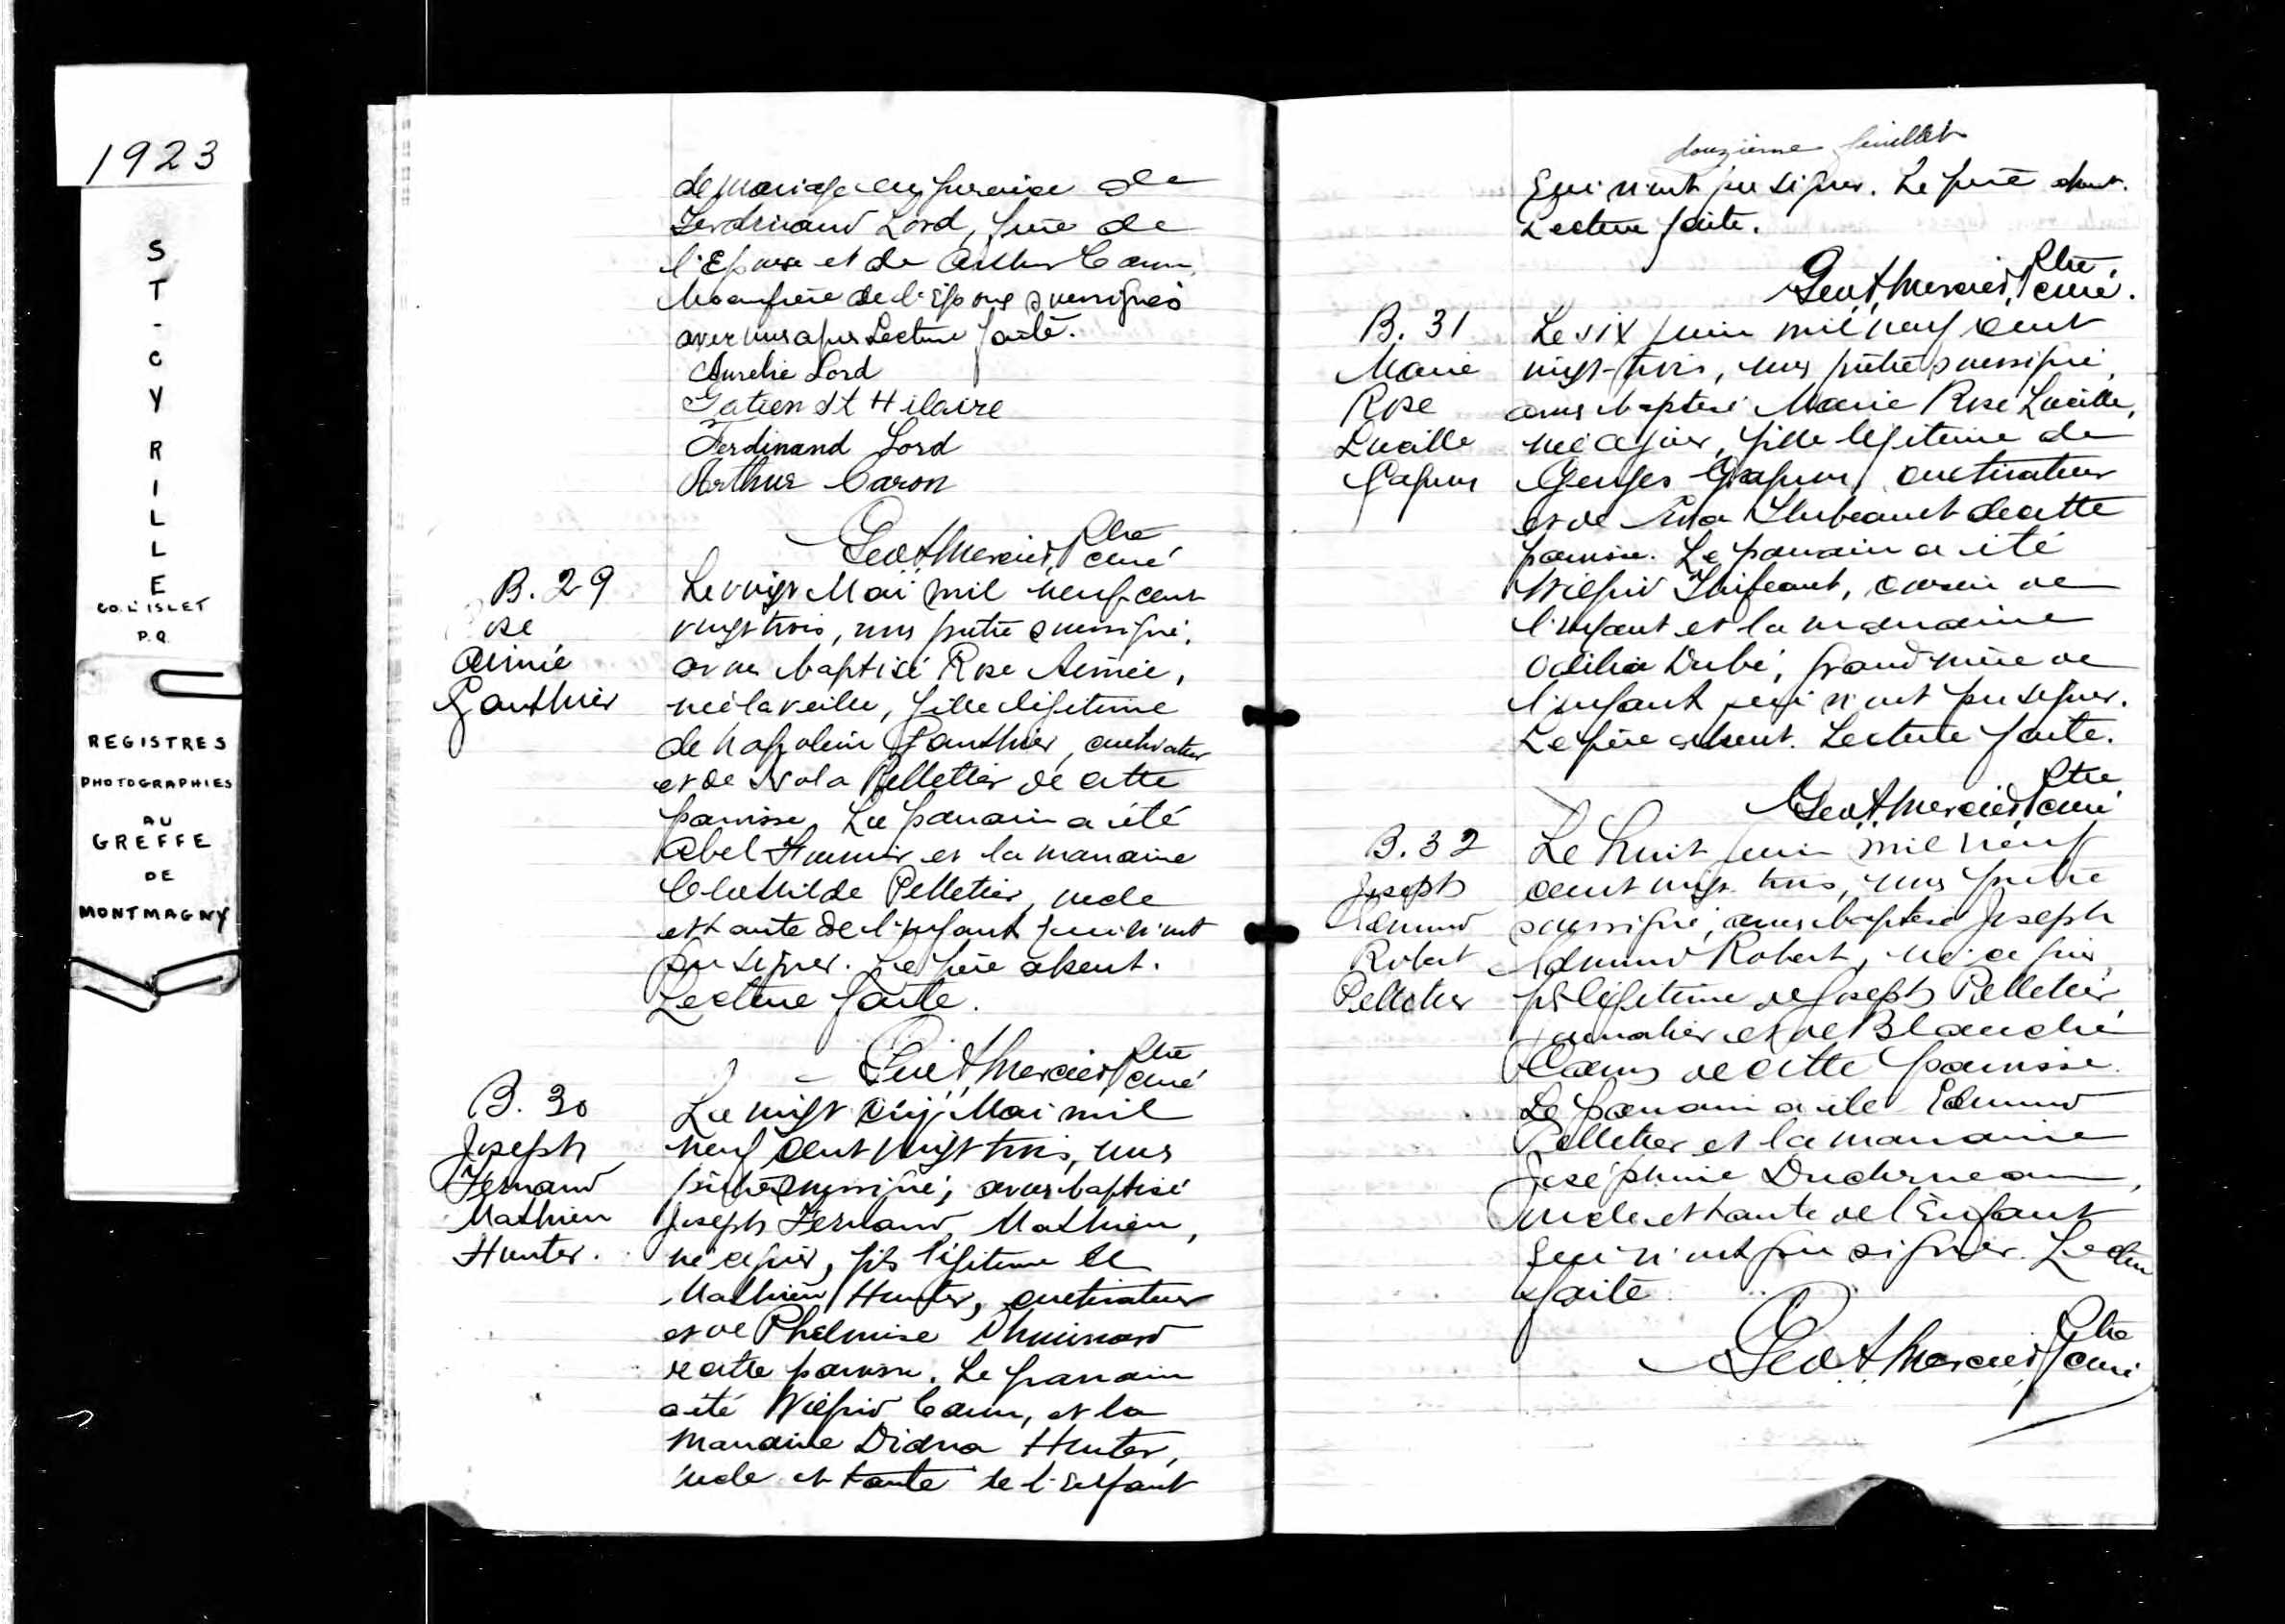 1923
ST-CYRILLE
CO. L'ISLET
P.Q.
REGISTRES
PHOTOGRAPHIES
AU
GREFFE
DE
MONTMAGNY
de mariage en présence de
Ferdinand Lord, père de
l'Epouse et de Arthur Caron,
beaufrère de l'Epoux soussignés
avec nous après Lecture faite.
Aurelie Lord
Gatien St Hilaire
Ferdinand Lord
Arthur Caron
Geo A Mercier, Ptre curé
B. 29
Rose
Aimée
Gauthier
Le vingt Mai mil neuf cent
vingt trois, nous prêtre soussigné,
avons baptisé Rose Aimée,
née la veille, fille légitime
de Napoléon Gauthier, cultivateur
et de Pelletier de cette
paroisse. Le parrain a été
Abel et la marraine
Clothilde Pelletier, oncle
et tante de l'enfant qui n'ont
pu signer. Le père absent.
Lecture faite.
Geo A Mercier Ptre curé
B. 30
Joseph
Fernand
Mathieu
Hunter.
Le vingt cinq Mai mil
neuf cent vingt trois, nous
prêtre soussigné, avons baptisé
Joseph Fernand Mathieu,
né ce jour, fils légitime de
Mathieu Hunter, cultivateur
et de Phelmise Chouinard
de cette paroisse. Le parrain
a été Wilfrid Caron, et la
marraine Diana Hunter,
oncle et tante de l'enfant
douzième feuillet
qui n'ont pu signer. Le père absent.
Lecture faite.
Geo A Mercier, Ptre curé.
B. 31
Marie
Rose
Lucille
Gagnon
Le six juin mil neuf cent
vingt-trois, nous prêtre soussigné,
avons baptisé Marie Rose Lucille,
née ce jour, fille légitime de
Georges Gagnon, cultivateur
et de Thibeault de cette
paroisse. Le parrain a été
Wilfrid Thibeault, cousin de
l'enfant et la marraine
Odélia Dubé, grand'mère de
l'enfant qui n'ont pu signer.
Le père absent. Lecture faite.
Geo A Mercier Ptre curé
B. 32
Joseph
Edmund
Robert
Pelletier
Le huit juin mil neuf
cent vingt trois, nous prêtre
soussigné, avons baptisé Joseph
Edmund Robert, né ce jour,
fils légitime de Joseph Pelletier,
journalier et de Blanche
Caron de cette paroisse.
Le parrain a été Edmund
Pelletier et la marraine
Joséphine Duchesneau,
oncle et tante de l'Enfant
qui n'ont pu signer. Lecture
faite.
Geo A Mercier Ptre curé